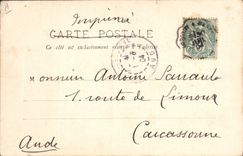 Imprimé
CARTE POSTALE
Ce côté est exclusivement réservé à l'adresse
Monsieur Antoine Sarraute
1. route de Limoux
Carcassonne
Aude